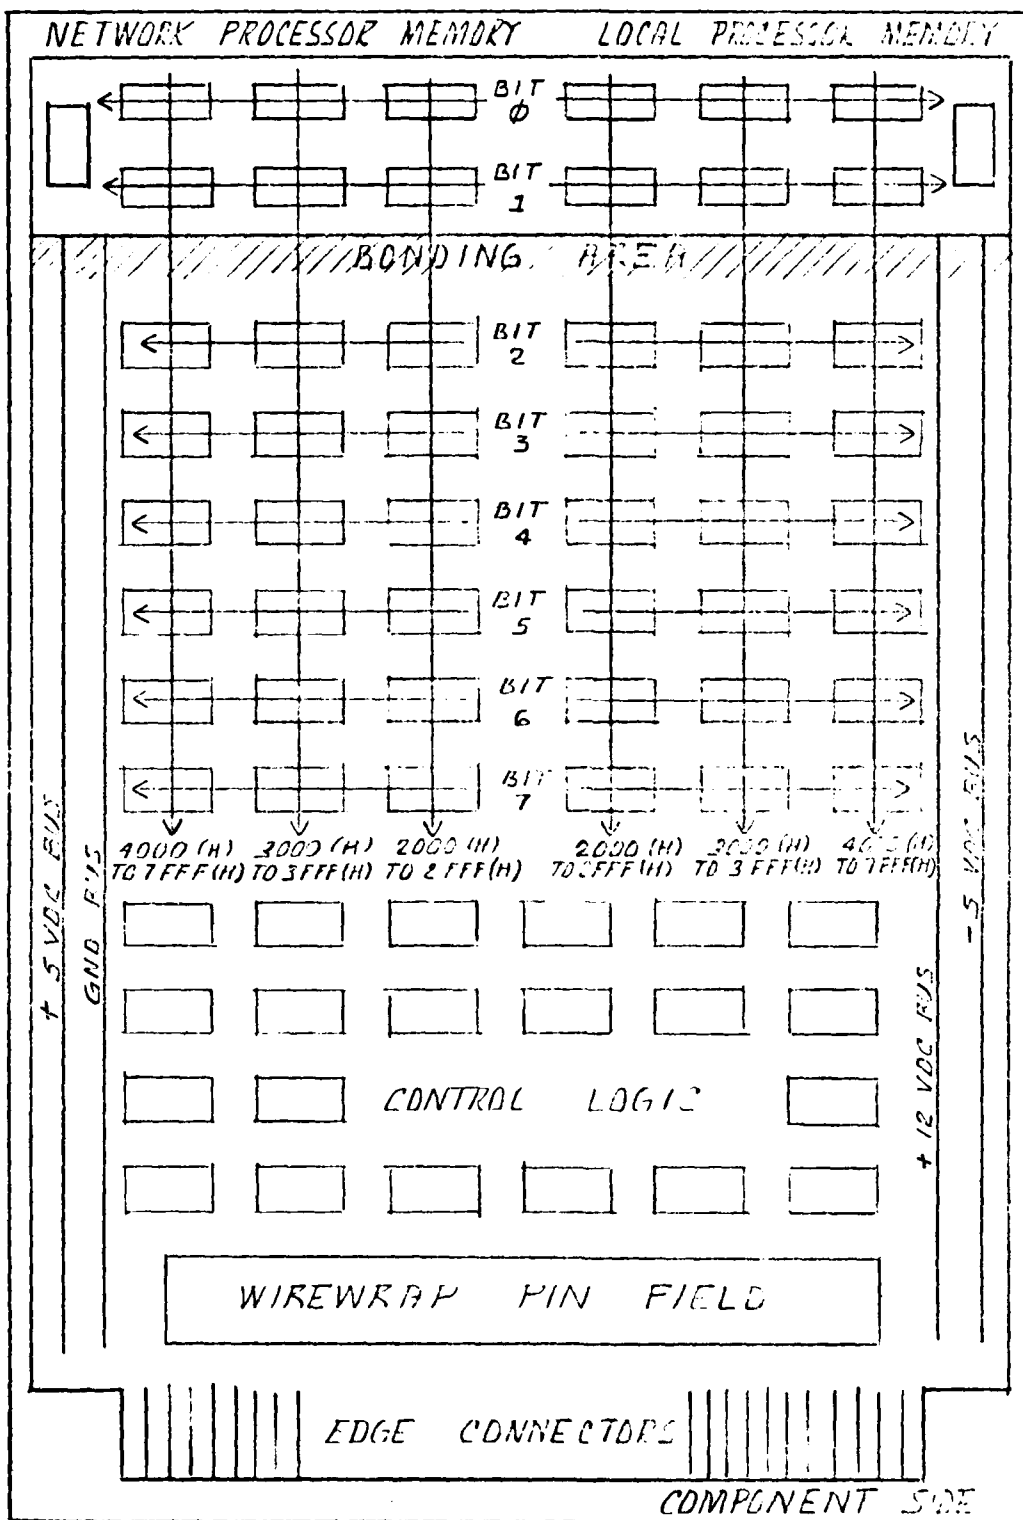 NETWORK PROCESSOR MEMORY LOCAL PROCESSOR MEMORY
BIT
0
BIT
1
BONDING AREA
BIT
2
BIT
3
BIT
4
BIT
5
BIT
6
BIT
7
4000 (H) 3000 (H) 2000 (H) 2000 (H) 3000 (H) 4000 (H)
TO 7FFF(H) TO 3FFF(H) TO 2FFF(H) TO 2FFF(H) TO 3FFF(H) TO 7FFF(H)
+ 5 VDC BUS
GND BUS
- 5 VDC BUS
+ 12 VDC BUS
CONTROL LOGIC
WIREWRAP PIN FIELD
EDGE CONNECTORS
COMPONENT SIDE